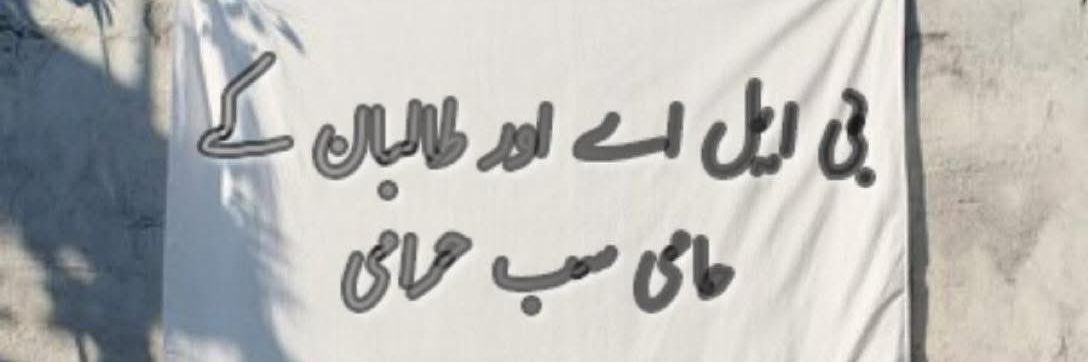 بی ایل اے اور طالبان کے
حامی سب حرامی